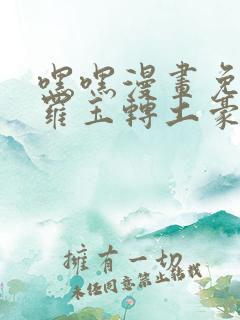 嘿嘿漫畫免
羅玉轉土豪
擁有一切
未經同意禁止轉載